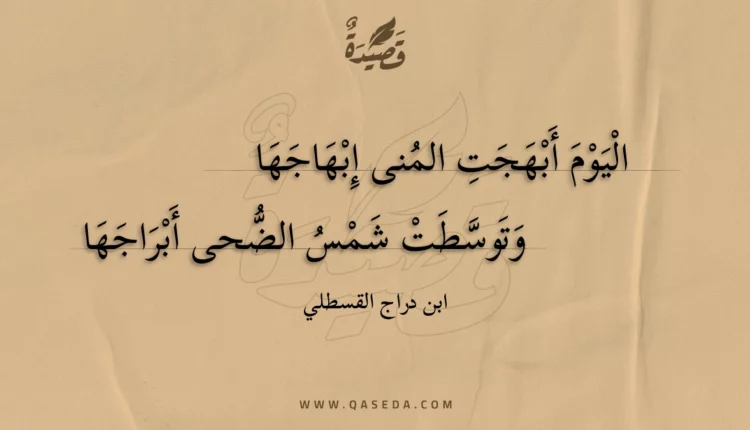 قَصِيدَةٌ
الْيَوْمَ أَبْهَجَتِ المُنى إِبْهَاجَهَا
وَتَوَسَّطَتْ شَمْسُ الضُّحى أَبْرَاجَهَا
ابن دراج القسطلي
WWW.QASEDA.COM